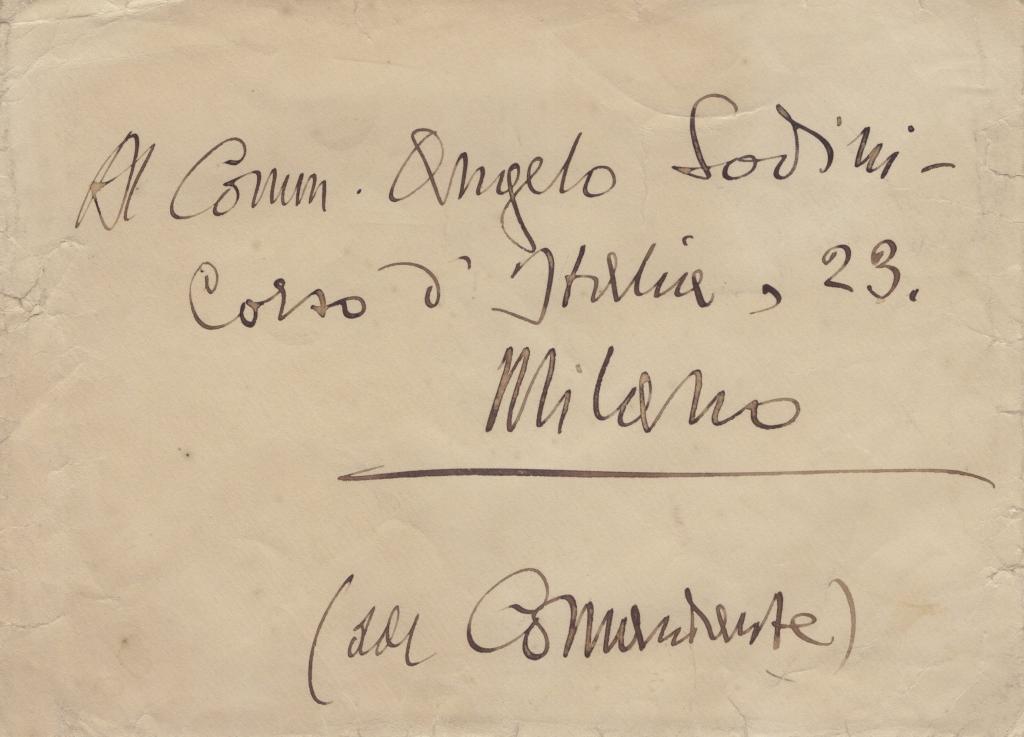 Al Comm. Angelo Sodini-
Corso d'Italia, 23.
Milano
(dal Comandante)